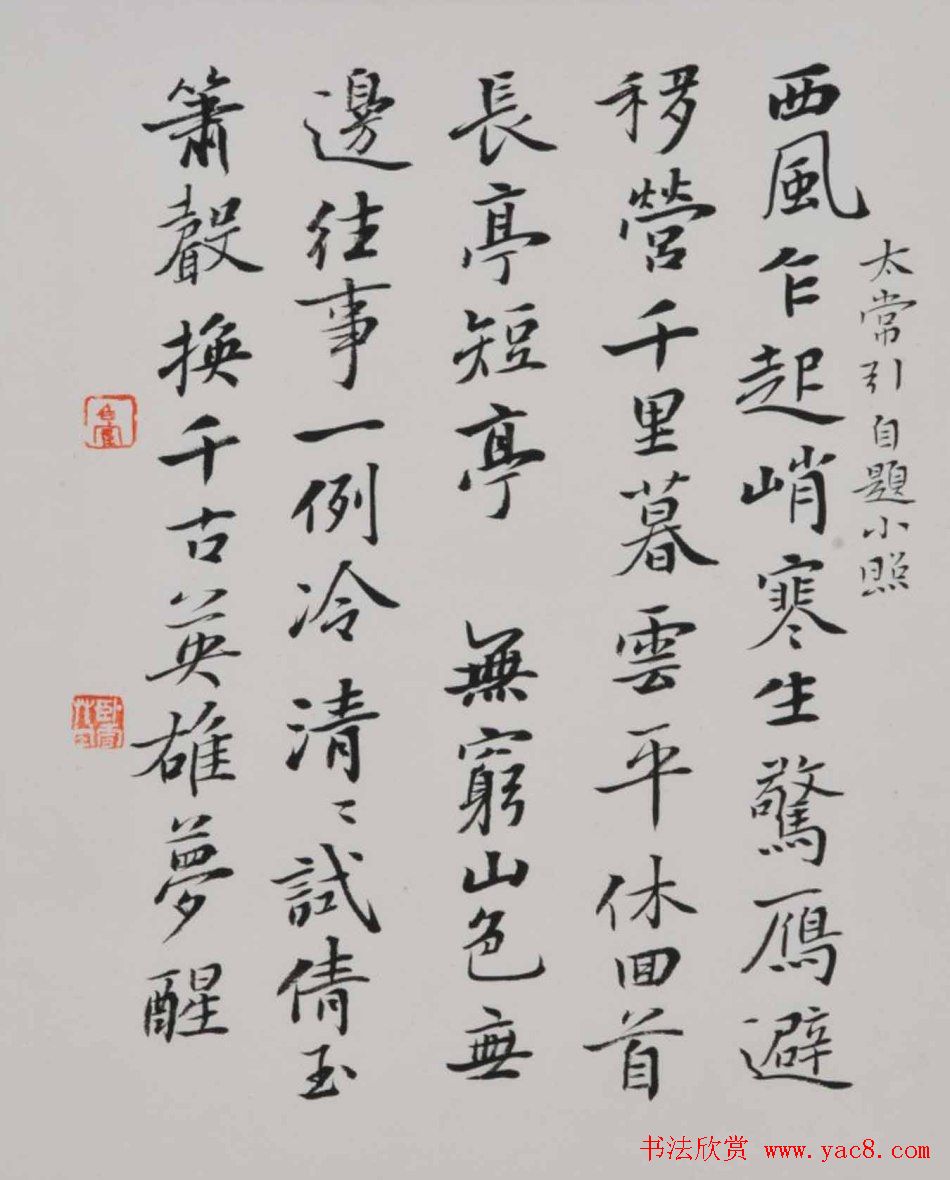 太常引自題小照
西風乍起峭寒生驚雁避
移營千里暮雲平休回首
長亭短亭 無窮山色無
邊往事一例冷清〻試倩玉
簫聲換千古英雄夢醒
书法欣赏 www.yac8.com